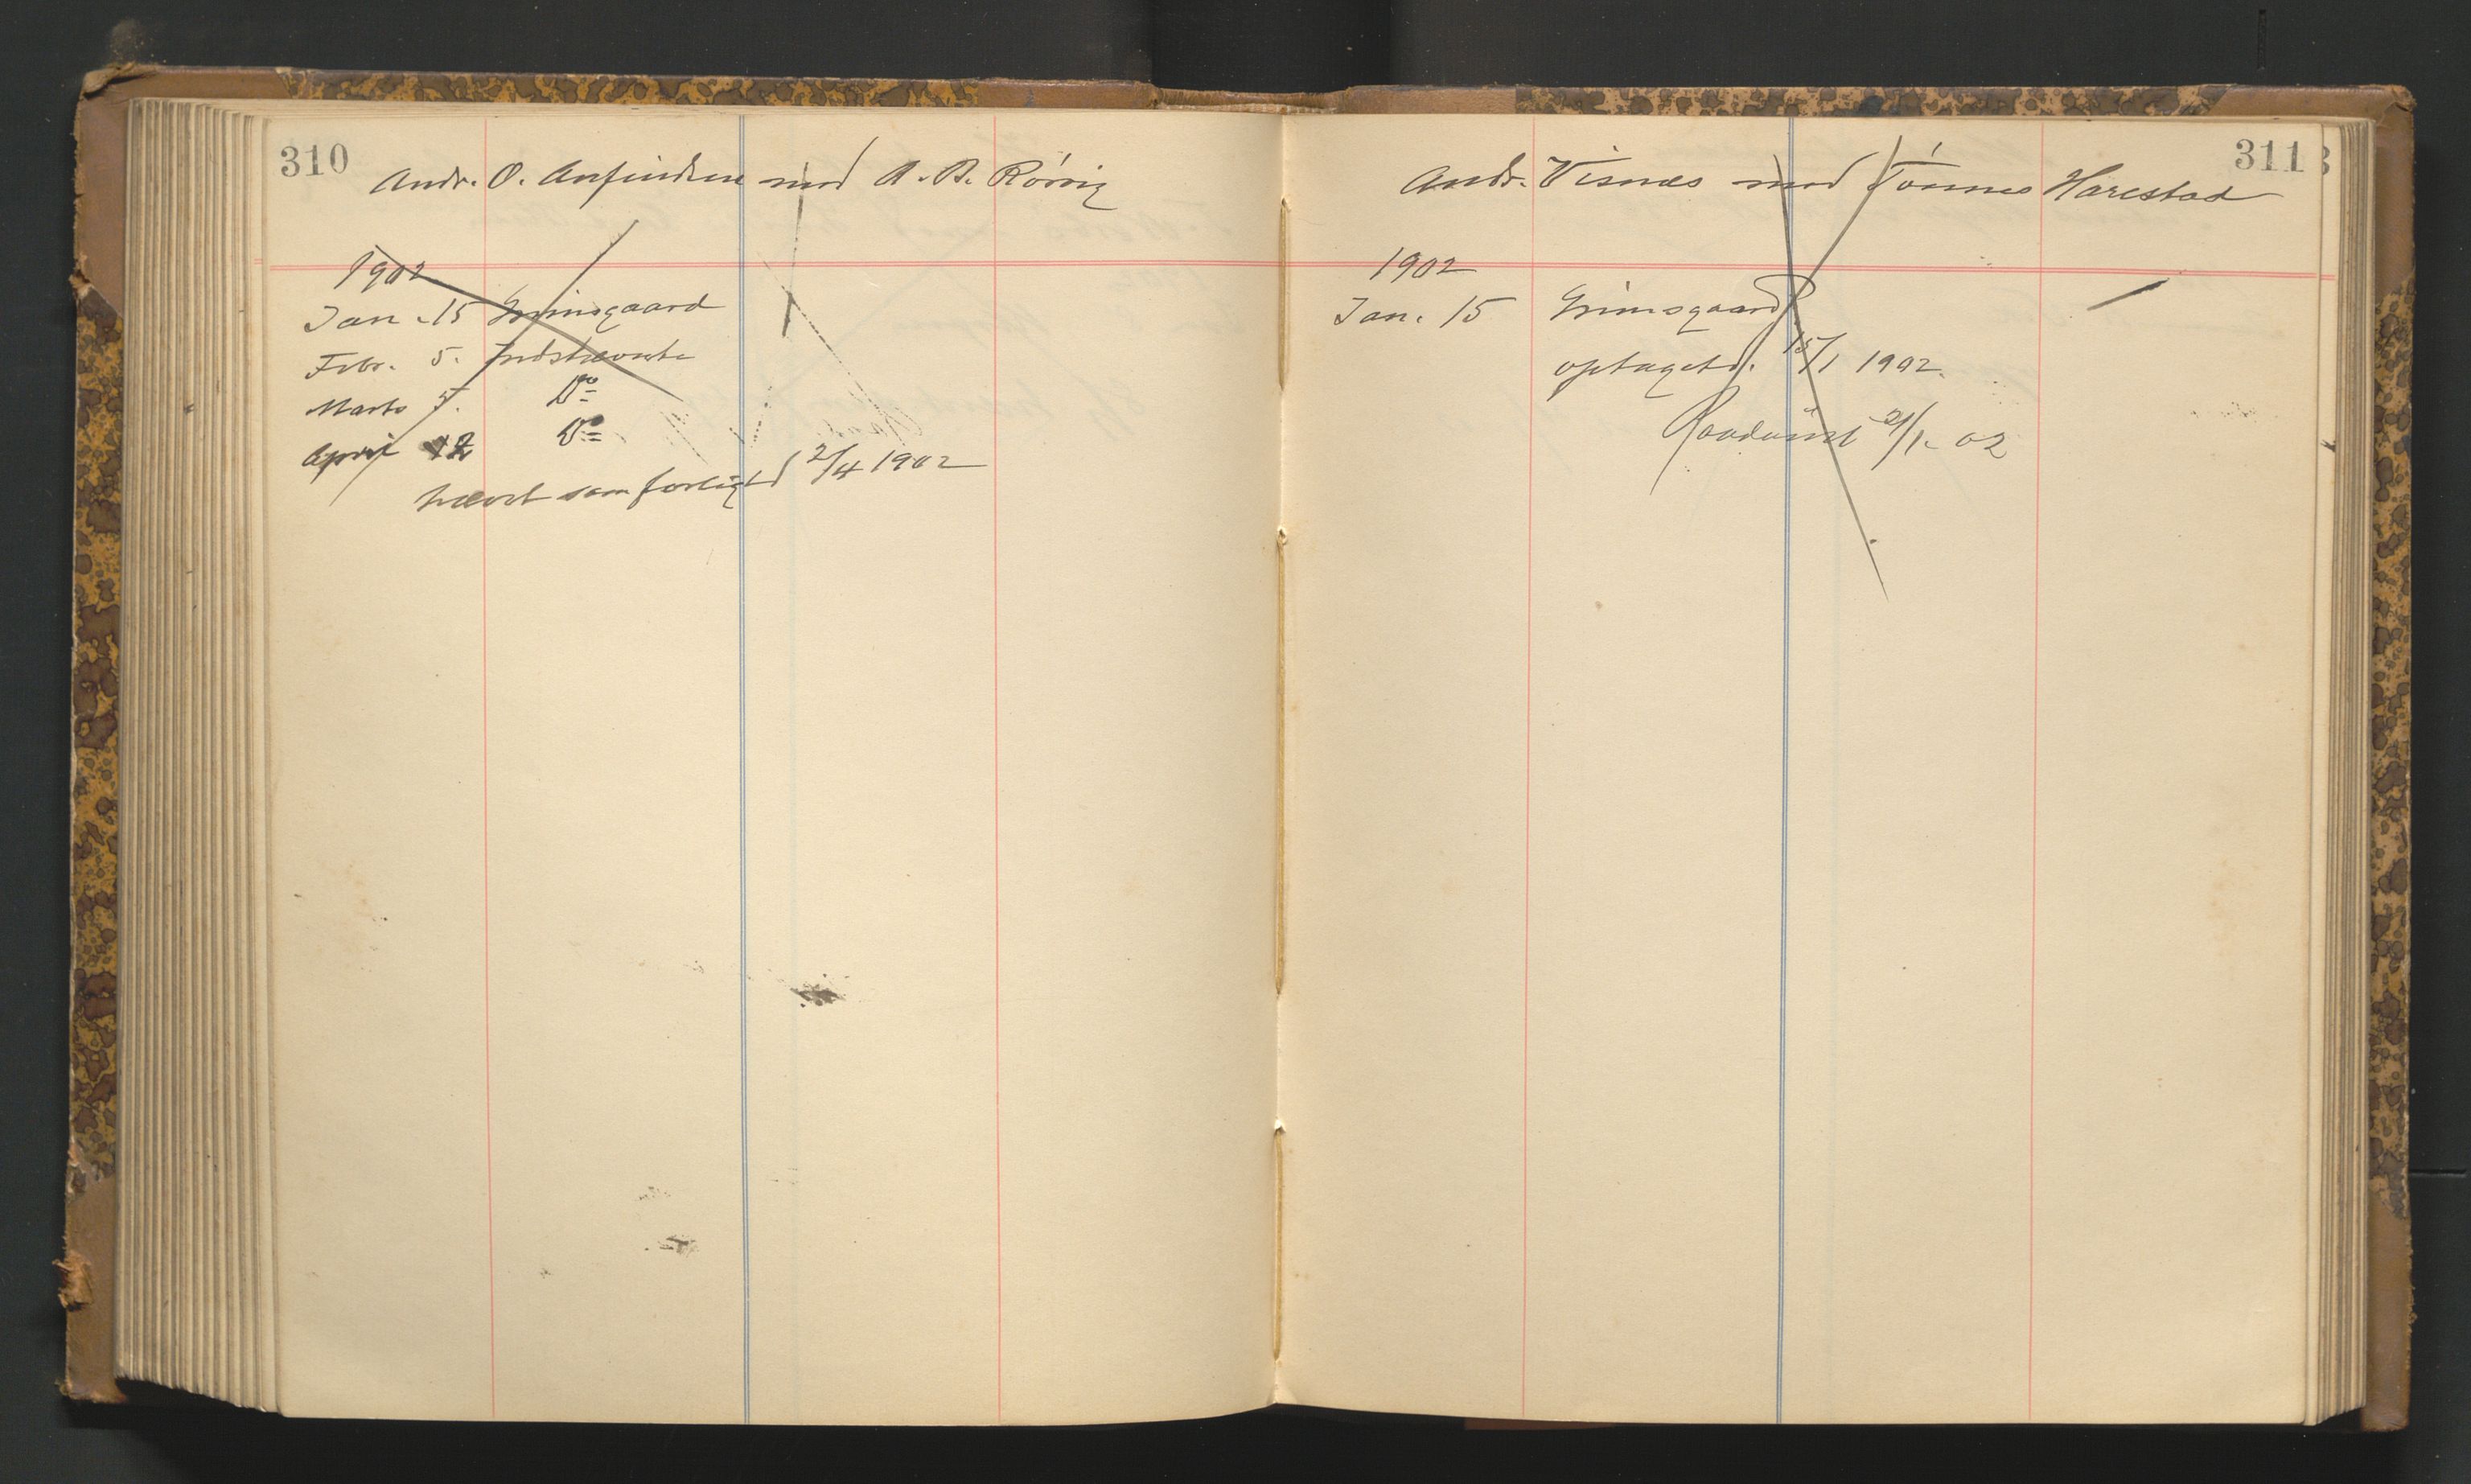 310
Andr. O. Anfindsen mod A. B. Rörvig
1902
Jan. 15 Grimsgaard
Febr. 5. Indstævnte
Marts 5. Do
April 2 Do
hævet som forligt d 2/4 1902
311
Andr. Visnæs mod Tönnes Harestad
1902
Jan. 15 Grimsgaard
optaget d. 15/1 1902.
21/1 - 02